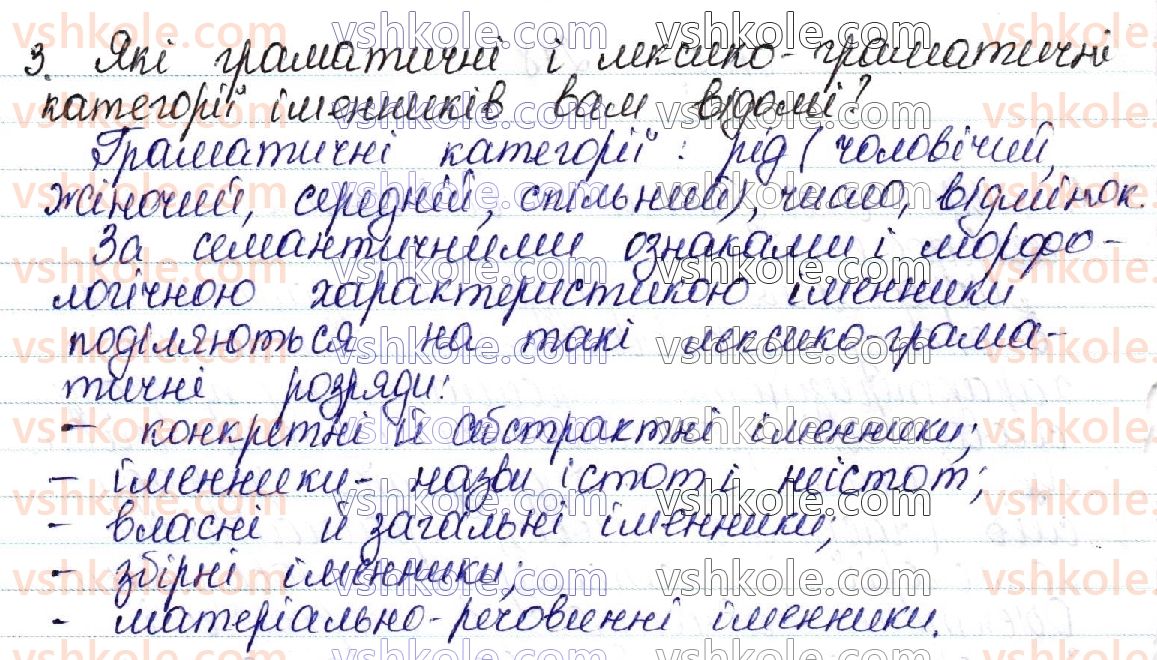 3. Які граматичні і лексико-граматичні
категорії іменників вам відомі?
Граматичні категорії: рід (чоловічий,
жіночий, середній, спільний), число, відмінок.
За семантичними ознаками і морфо-
логічною характеристикою іменники
поділяються на такі лексико-грама-
тичні розряди:
- конкретні й абстрактні іменники;
- іменники - назви істот і неістот;
- власні й загальні іменники;
- збірні іменники;
- матеріально-речовинні іменники.
vshkole.com